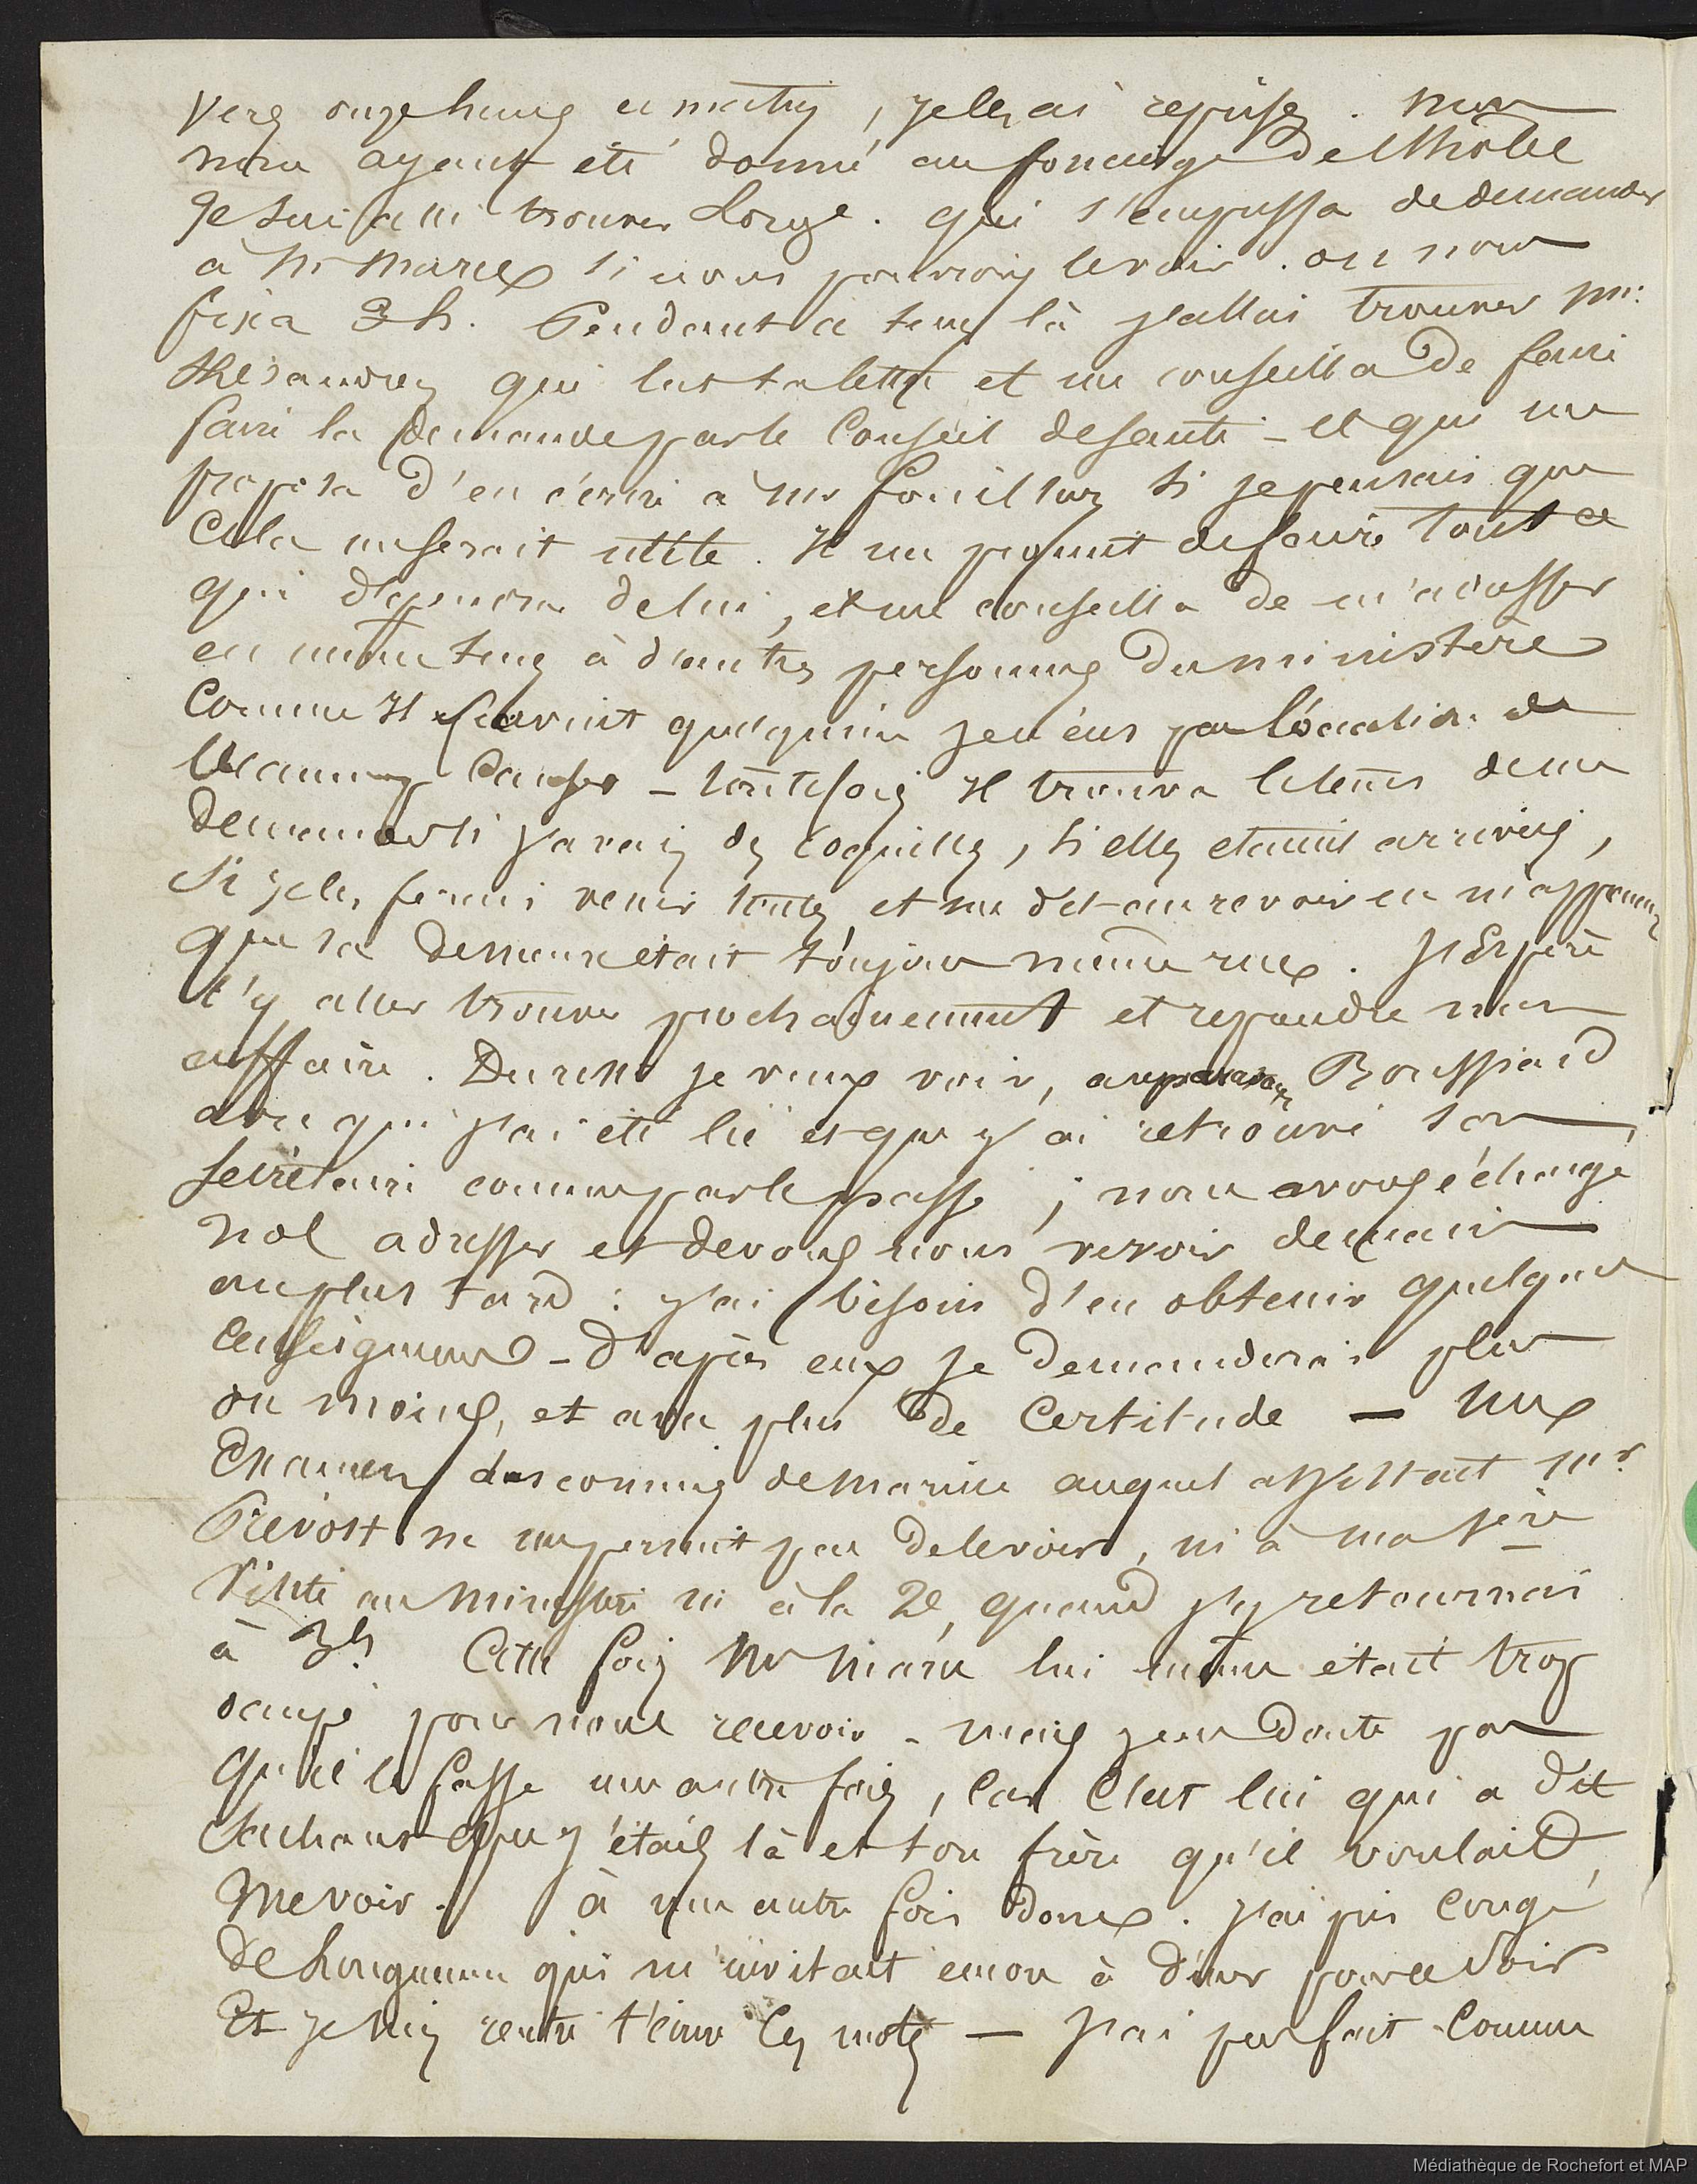 vers onze heures ce matin, je les ai repris. mon
nom ayant été donné au concierge de l'hôtel
Je suis allé trouver Lorge. qui s'empressa de demander
à Mr Marec si nous pourrions le voir. on nous
fixa 3 h. Pendant ce tems là j'allai trouver Mr
qui lut ta lettre et me conseilla de faire
faire la demande par le Conseil de santé - et qui me
proposa d'en écrire à Mr si je pensais que
Cela me serait utile. Il me promit de faire tout ce
qui dépendra de lui, et me conseilla de m'adresser
en même tems à d'autres personnes du ministère
Comme il survint quelqu'un je n'eus pas l'occasion de
beaucoup Causer - toutefois il trouva le tems de me
demander si j'avais des coquilles, si elles etaient arrivées,
Si je les ferais venir toutes et me dit au revoir en m'apprenant
que sa demeure était toujours même rue. J'Espère
l'y aller trouver prochainement et reprendre mon
affaire. Du reste je veux voir, auparavant
avec qui j'ai été lié et que j'ai retrouvé son
secrétaire comme par le passé ; nous avons échangé
nos adresses et devons nous revoir demain
au plus tard : j'ai besoin d'en obtenir quelques
renseignemens - D'après eux je demanderai plus
ou moins, et avec plus de Certitude — un
Examen des commis de marine auquel assistait Mr
Prévost ne me permit pas de le voir, ni à ma 1ère
visite au ministère ni à la 2e, quand j'y retournai
à 3h. Cette fois Mr Marec lui même était trop
occupé pour nous recevoir - mais je ne doute pas
qu'il le fasse une autre fois, car C'est lui qui a dit
sachant que j'étais là et ton frère qu'il voulait
me voir. à une autre fois donc. j'ai pris congé
de qui m'invitait encore à dîner pour ce soir
Et je suis rentré t'écrire ces mots — j'ai parfait comme
Médiathèque de Rochefort et MAP